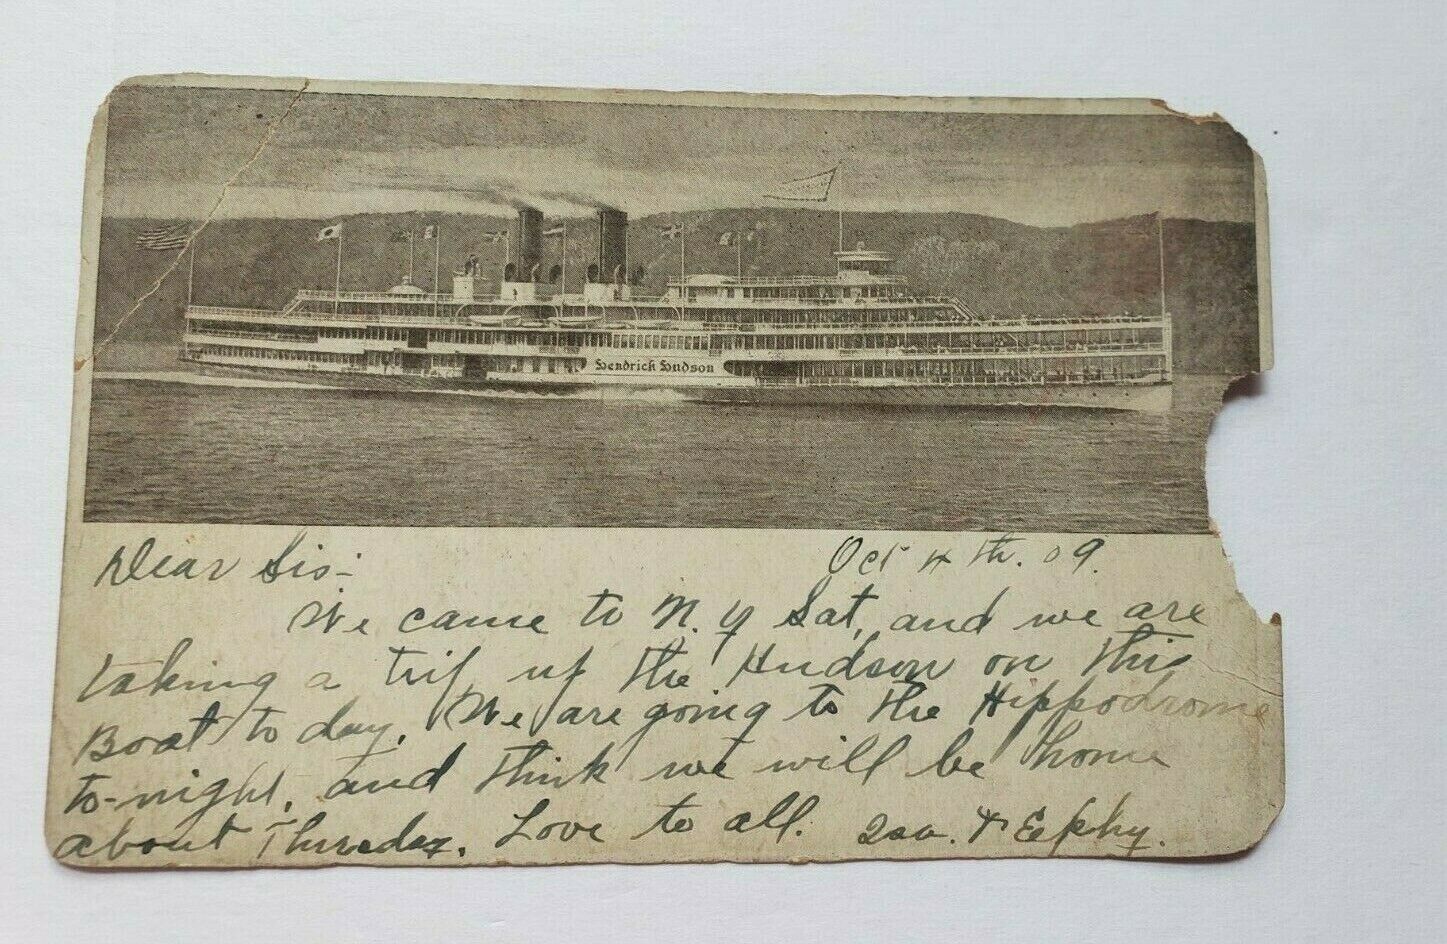 Hendrick Hudson
Dear Sis:- Oct 4th. 09.
We came to N. Y Sat, and we are
taking a trip up the Hudson on this
Boat to day. We are going to the Hippodrome
to-night, and think we will be home
about Thursday. Love to all. &